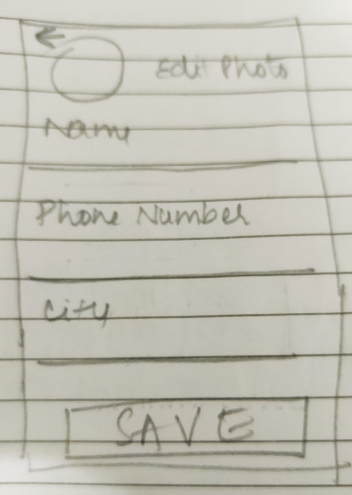 Edit Photo
Name
Phone Number
City
SAVE